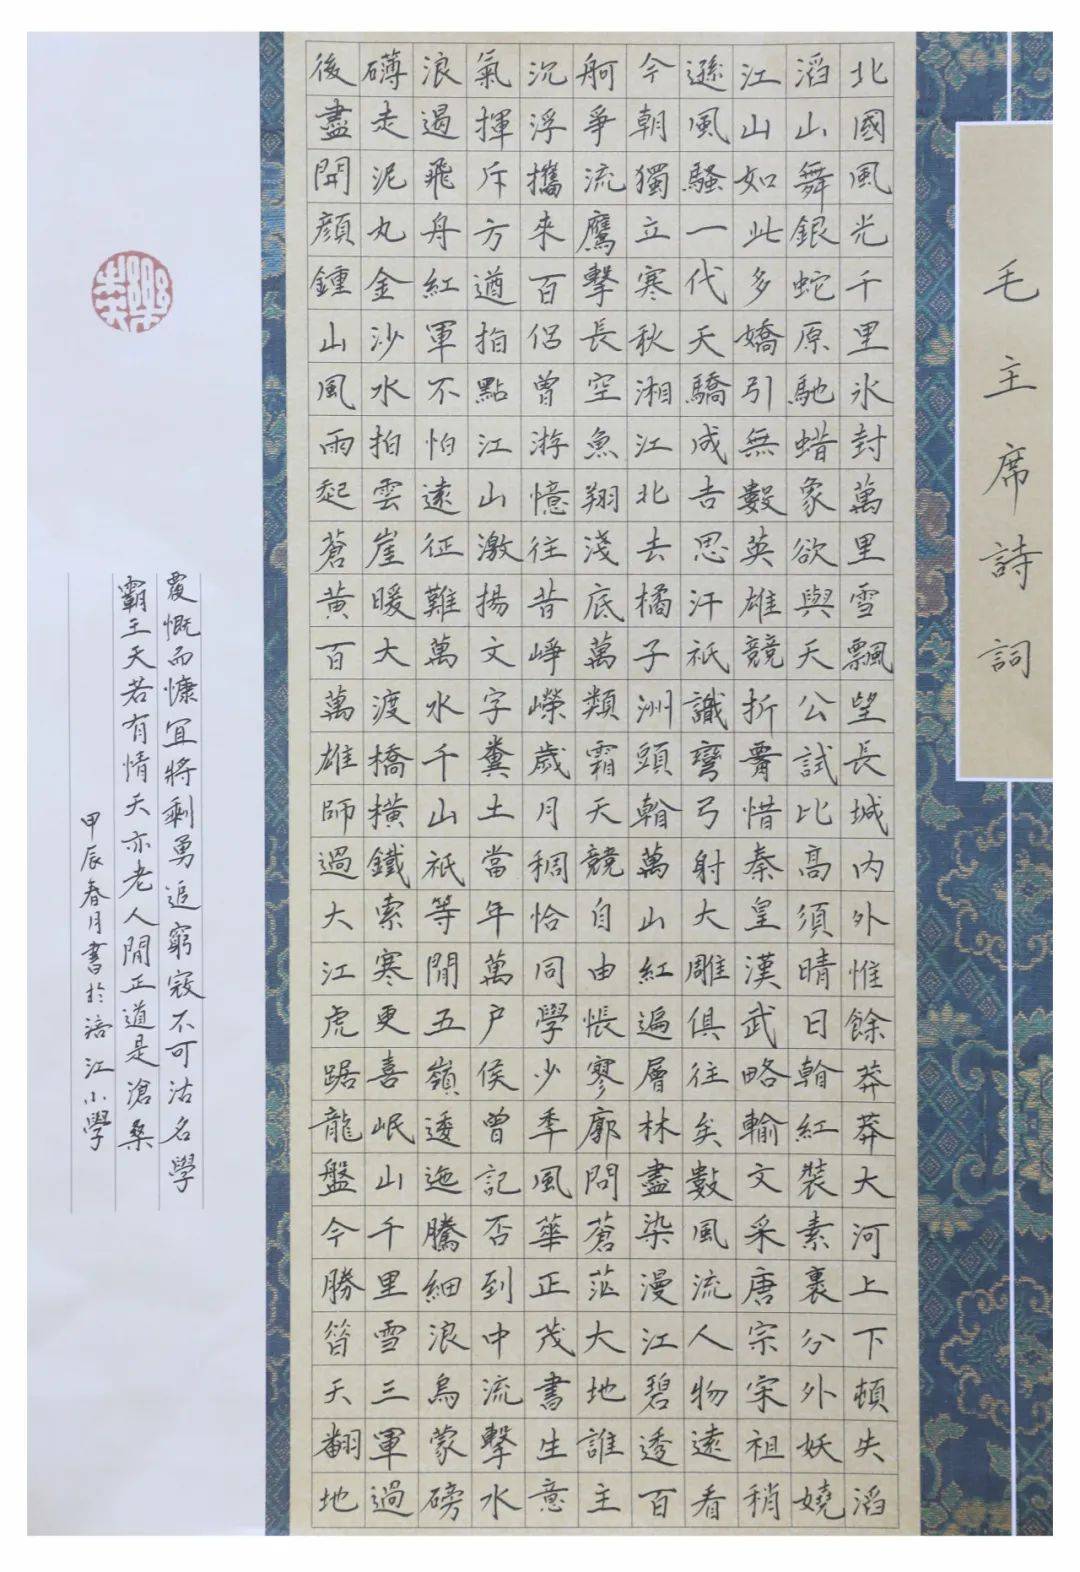 毛主席詩詞
北國風光千里氷封萬里雪飄望長城内外惟餘莽莽大河上下頓失滔
滔山舞銀蛇原馳蜡象欲與天公試比高須晴日翰紅裝素裹分外妖嬈
江山如此多嬌引無數英雄競折腰惜秦皇漢武略輸文采唐宗宋祖稍
遜風騷一代天驕成吉思汗祇識彎弓射大雕俱往矣數風流人物遠看
今朝獨立寒秋湘江北去橘子洲頭翰萬山紅遍層林盡染漫江碧透百
舸爭流鷹擊長空魚翔淺底萬類霜天競自由悵寥廓問蒼茫大地誰主
沉浮攜來百侶曾游憶往昔崢嶸歲月稠恰同學少季風華正茂書生意
氣揮斥方遒指點江山激揚文字糞土當年萬户侯曾記否到中流擊水
浪遏飛舟紅軍不怕遠征難萬水千山祇等閒五嶺逶迤騰細浪烏蒙磅
礴走泥丸金沙水拍雲崖暖大渡橋横鐵索寒更喜岷山千里雪三軍過
後盡開顏鍾山風雨起蒼黄百萬雄師過大江虎踞龍盤今勝昔天翻地
覆慨而慷宜將剩勇追窮寇不可沽名學
霸王天若有情天亦老人間正道是滄桑
甲辰春月書於涪江小學